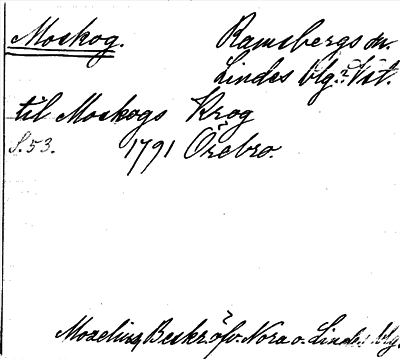 Moskog. Ramsbergs sn.
Lindes blg. Vst.
til Moskogs Krog
S. 53. 1791 Örebro.
Mozelius, Beskr. öfv. Nora o. Lindes blg.